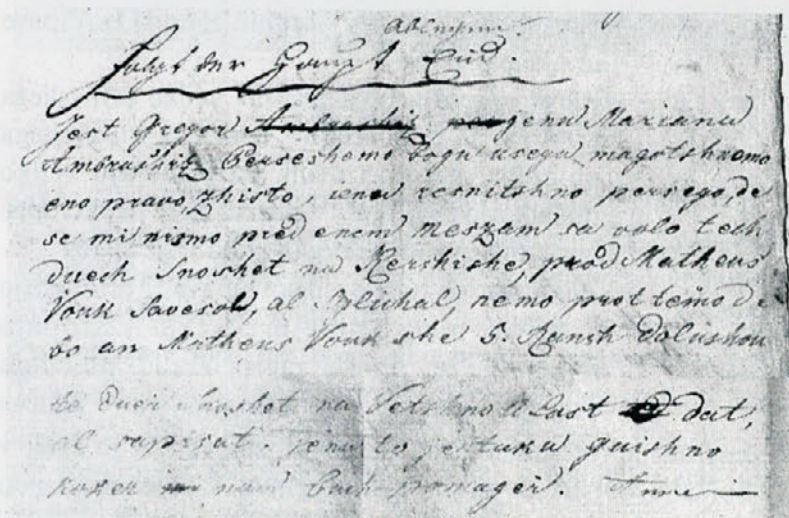 folgt der Haupt Eid.
Jest Gregor Ambrashiz jenu Mariana
Ambrashiz Perseshemo bogu usega magotshnemo
eno pravo, zhisto, ienu resnitshno persego, de
se mi nismo pred enem meszam sa volo teh
duech Snoshet na Kershishe, pred Matheus
Vouk Savesal, al Obluhal, nemo prot temo de
bo an Matheus Vouk she 5. Ranish dolushou
te duei Snoshet na Vetshno Last dat,
al sapisat. jenu to jestaku guishno
koker nam Buch pomagei. Amen